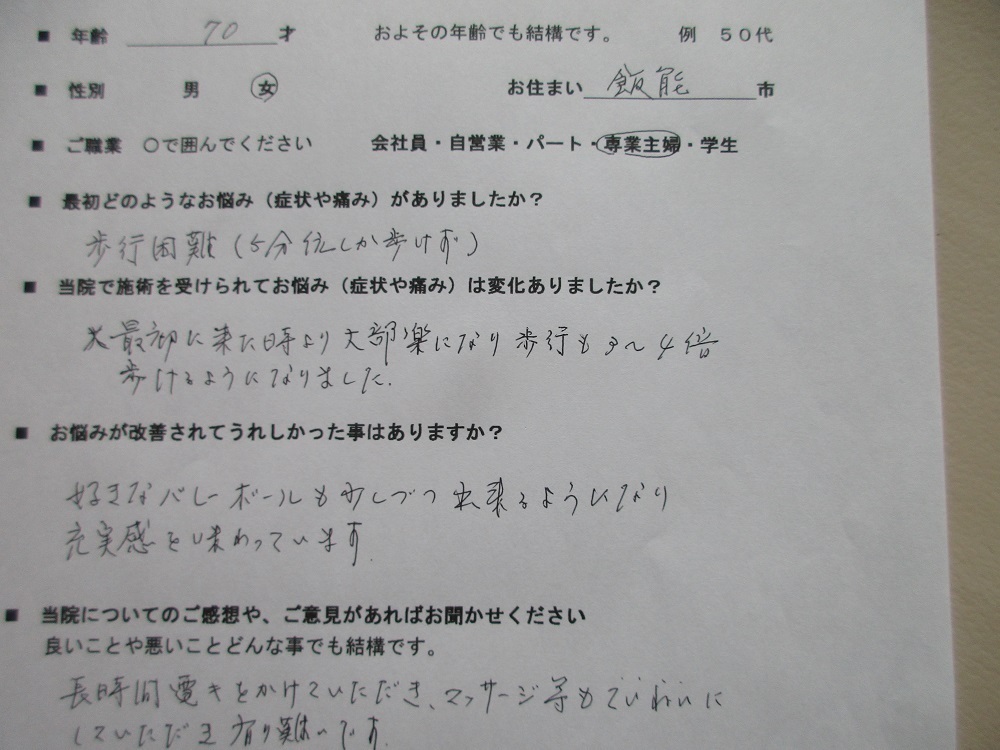 ■ 年齢 70 才 およその年齢でも結構です。 例 50代
■ 性別 男 女 お住まい 飯能 市
■ ご職業 ○で囲んでください 会社員・自営業・パート・専業主婦・学生
■ 最初どのようなお悩み（症状や痛み）がありましたか？
歩行困難(5分位しか歩けず)
■ 当院で施術を受けられてお悩み（症状や痛み）は変化ありましたか？
最初に来た時より大部楽になり歩行も3～4倍
歩けるようになりました.
■ お悩みが改善されてうれしかった事はありますか？
好きなバレーボールも少しづつ出来るようになり
充実感を味わっています.
■ 当院についてのご感想や、ご意見があればお聞かせください
良いことや悪いことどんな事でも結構です。
長時間電キをかけていただき、マッサージ等もていねいに
していただき有り難いです.